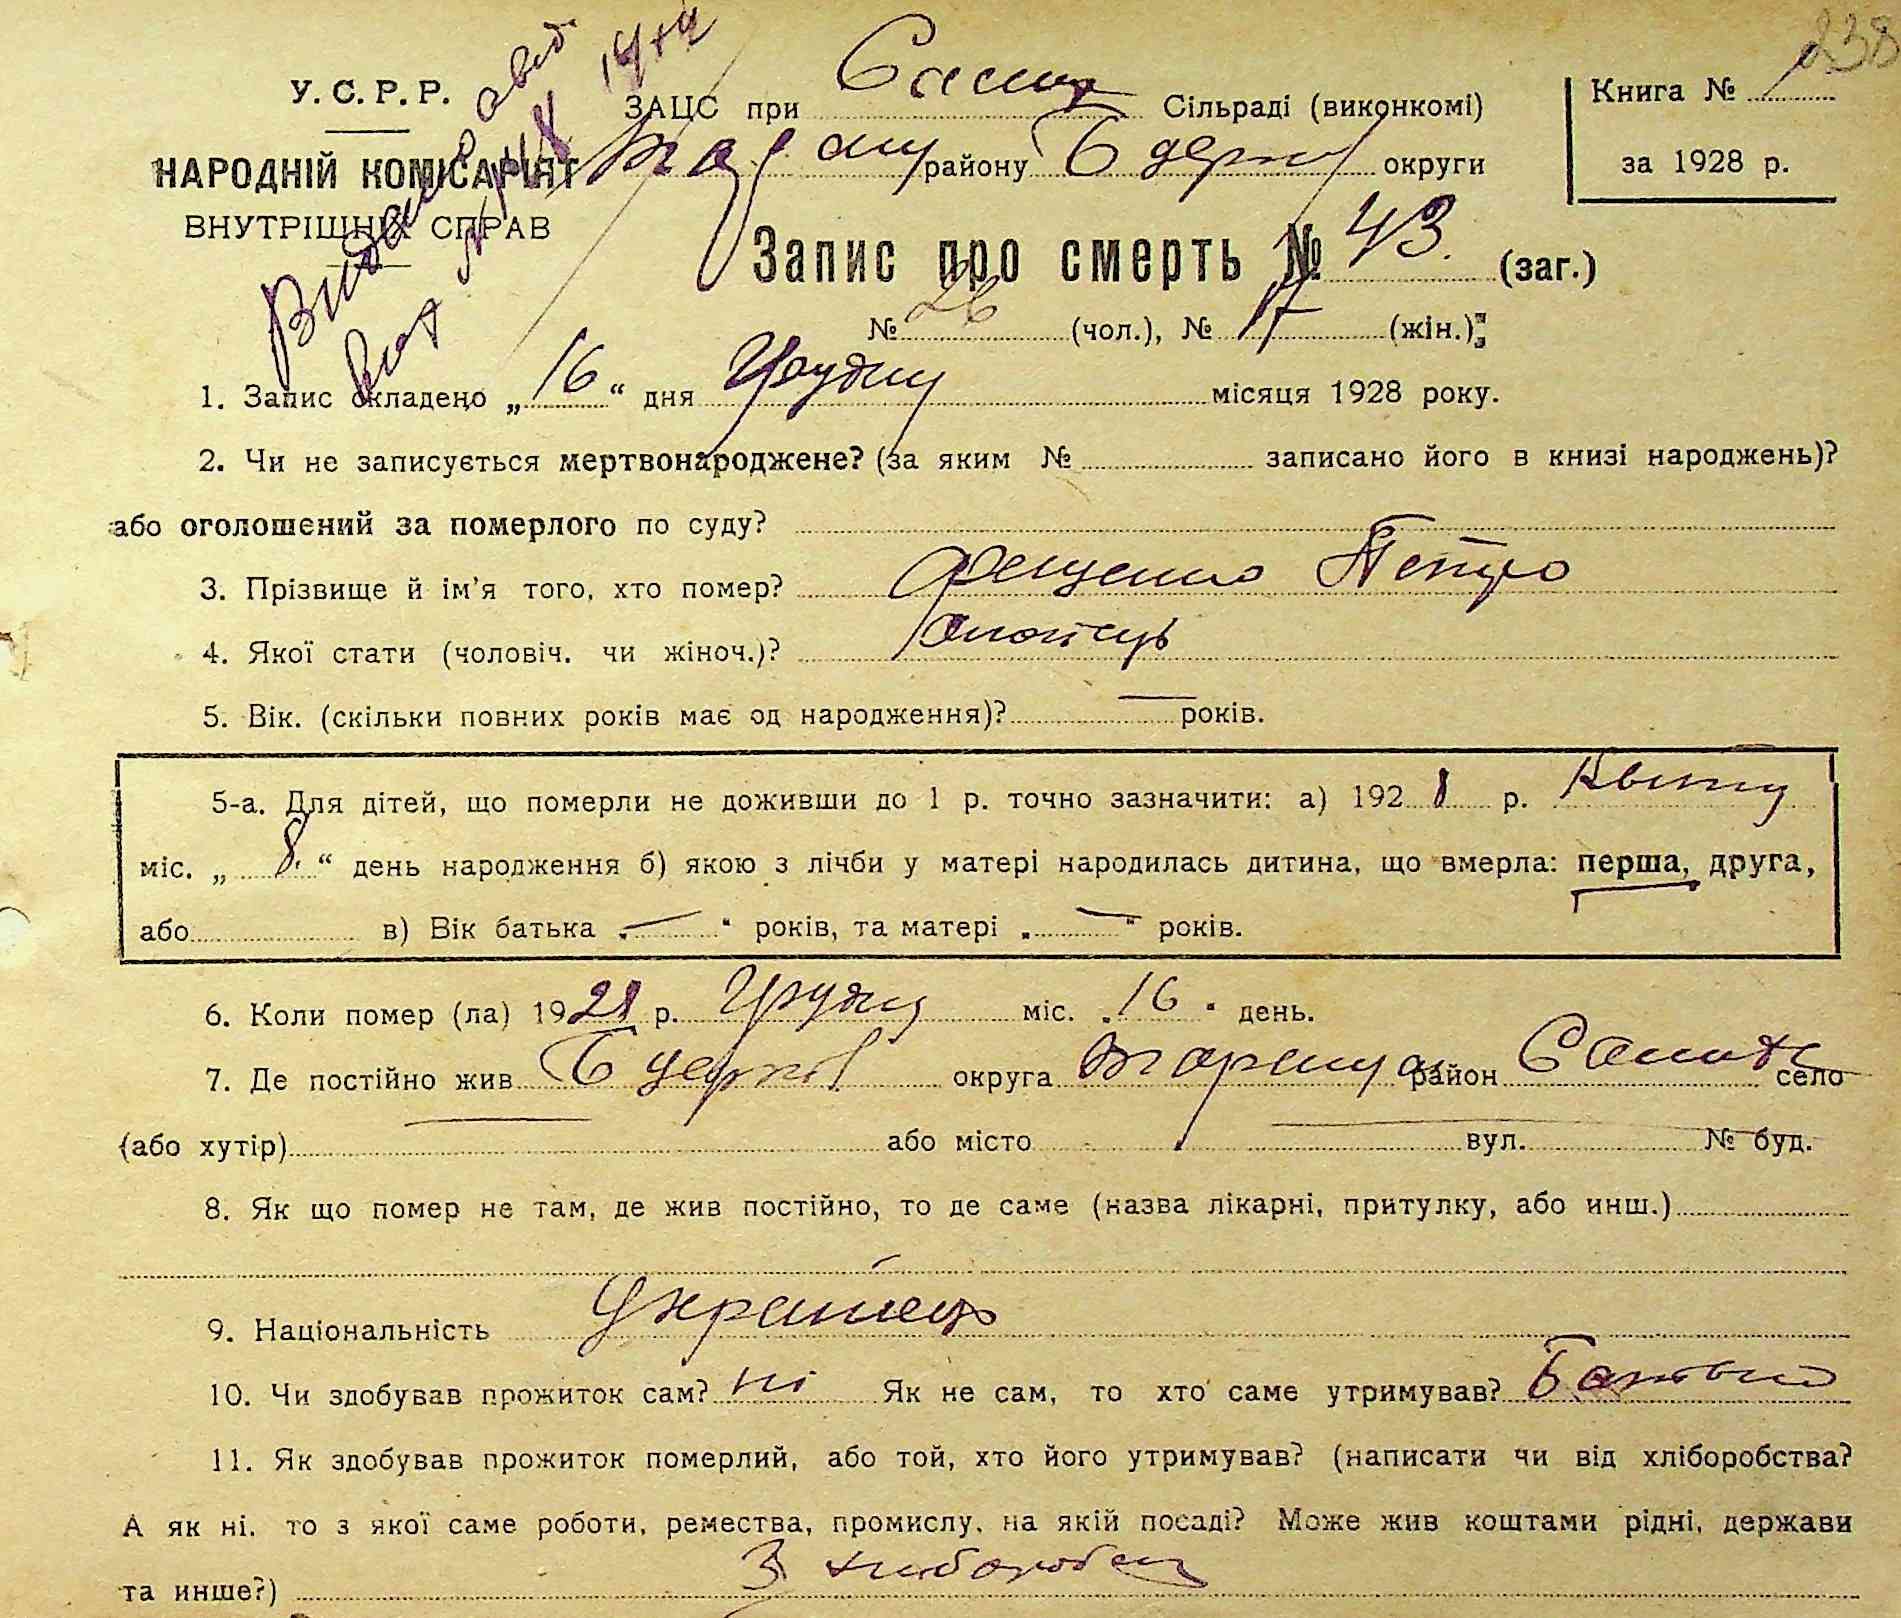 238
У. С. Р. Р.
НАРОДНІЙ КОМІСАРІЯТ
ВНУТРІШНІХ СПРАВ
ЗАЦС при Сальц Сільраді (виконкомі)
району Б Церкв округи
Книга № 1
за 1928 р.
Запис про смерть № 43. (заг.)
№ 26 (чол.), № 17 (жін.)
1. Запис складено „ 16 “ дня Грудня місяця 1928 року.
2. Чи не записується мертвонароджене? (за яким № записано його в книзі народжень)?
або оголошений за померлого по суду?
3. Прізвище й ім'я того, хто помер? Петро
4. Якої стати (чоловіч. чи жіноч.)?
5. Вік. (скільки повних років має од народження)? — років.
5-а. Для дітей, що померли не доживши до 1 р. точно зазначити: а) 192 8 р. Квітня
міс. „ 8. “ день народження б) якою з лічби у матері народилась дитина, що вмерла: перша, друга,
або в) Вік батька „ — “ років, та матері „ — “ років.
6. Коли помер (ла) 1928 р. Грудня міс. „ 16 “ день.
7. Де постійно жив Б Церків округа район село
(або хутір) — або місто — вул. № буд.
8. Як що помер не там, де жив постійно, то де саме (назва лікарні, притулку, або инш.)
9. Національність Українець
10. Чи здобував прожиток сам? ні Як не сам, то хто саме утримував? Батько
11. Як здобував прожиток померлий, або той, хто його утримував? (написати чи від хліборобства?
А як ні, то з якої саме роботи, ремества, промислу, на якій посаді? Може жив коштами рідні, держави
та инше?) З хліборобства